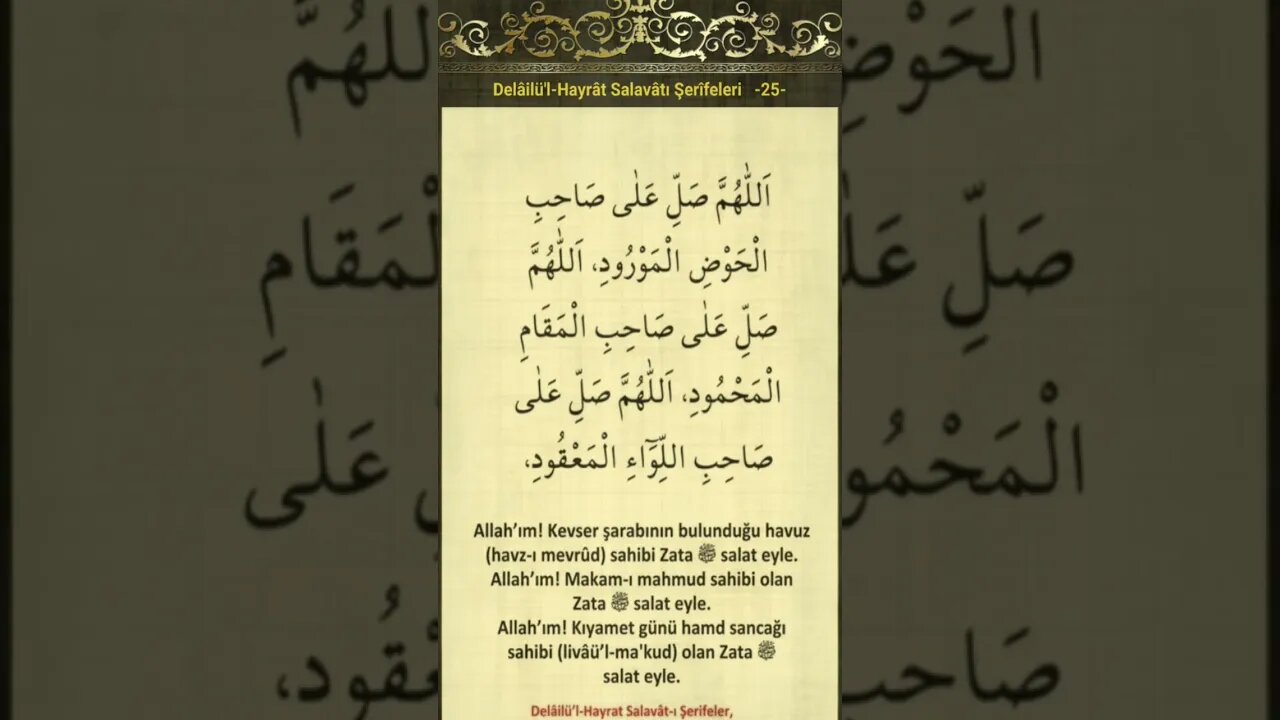 Delâilü'l-Hayrât Salavâtı Şerîfeleri -25-
اَللّٰهُمَّ صَلِّ عَلٰى صَاحِبِ
الْحَوْضِ الْمَوْرُودِ، اَللّٰهُمَّ
صَلِّ عَلٰى صَاحِبِ الْمَقَامِ
الْمَحْمُودِ، اَللّٰهُمَّ صَلِّ عَلٰى
صَاحِبِ اللِّوَٓاءِ الْمَعْقُودِ،
Allah’ım! Kevser şarabının bulunduğu havuz
(havz-ı mevrûd) sahibi Zata ﷺ salat eyle.
Allah’ım! Makam-ı mahmud sahibi olan
Zata ﷺ salat eyle.
Allah’ım! Kıyamet günü hamd sancağı
sahibi (livâü’l-ma'kud) olan Zata ﷺ
salat eyle.
Delâilü’l-Hayrat Salavât-ı Şerifeler,